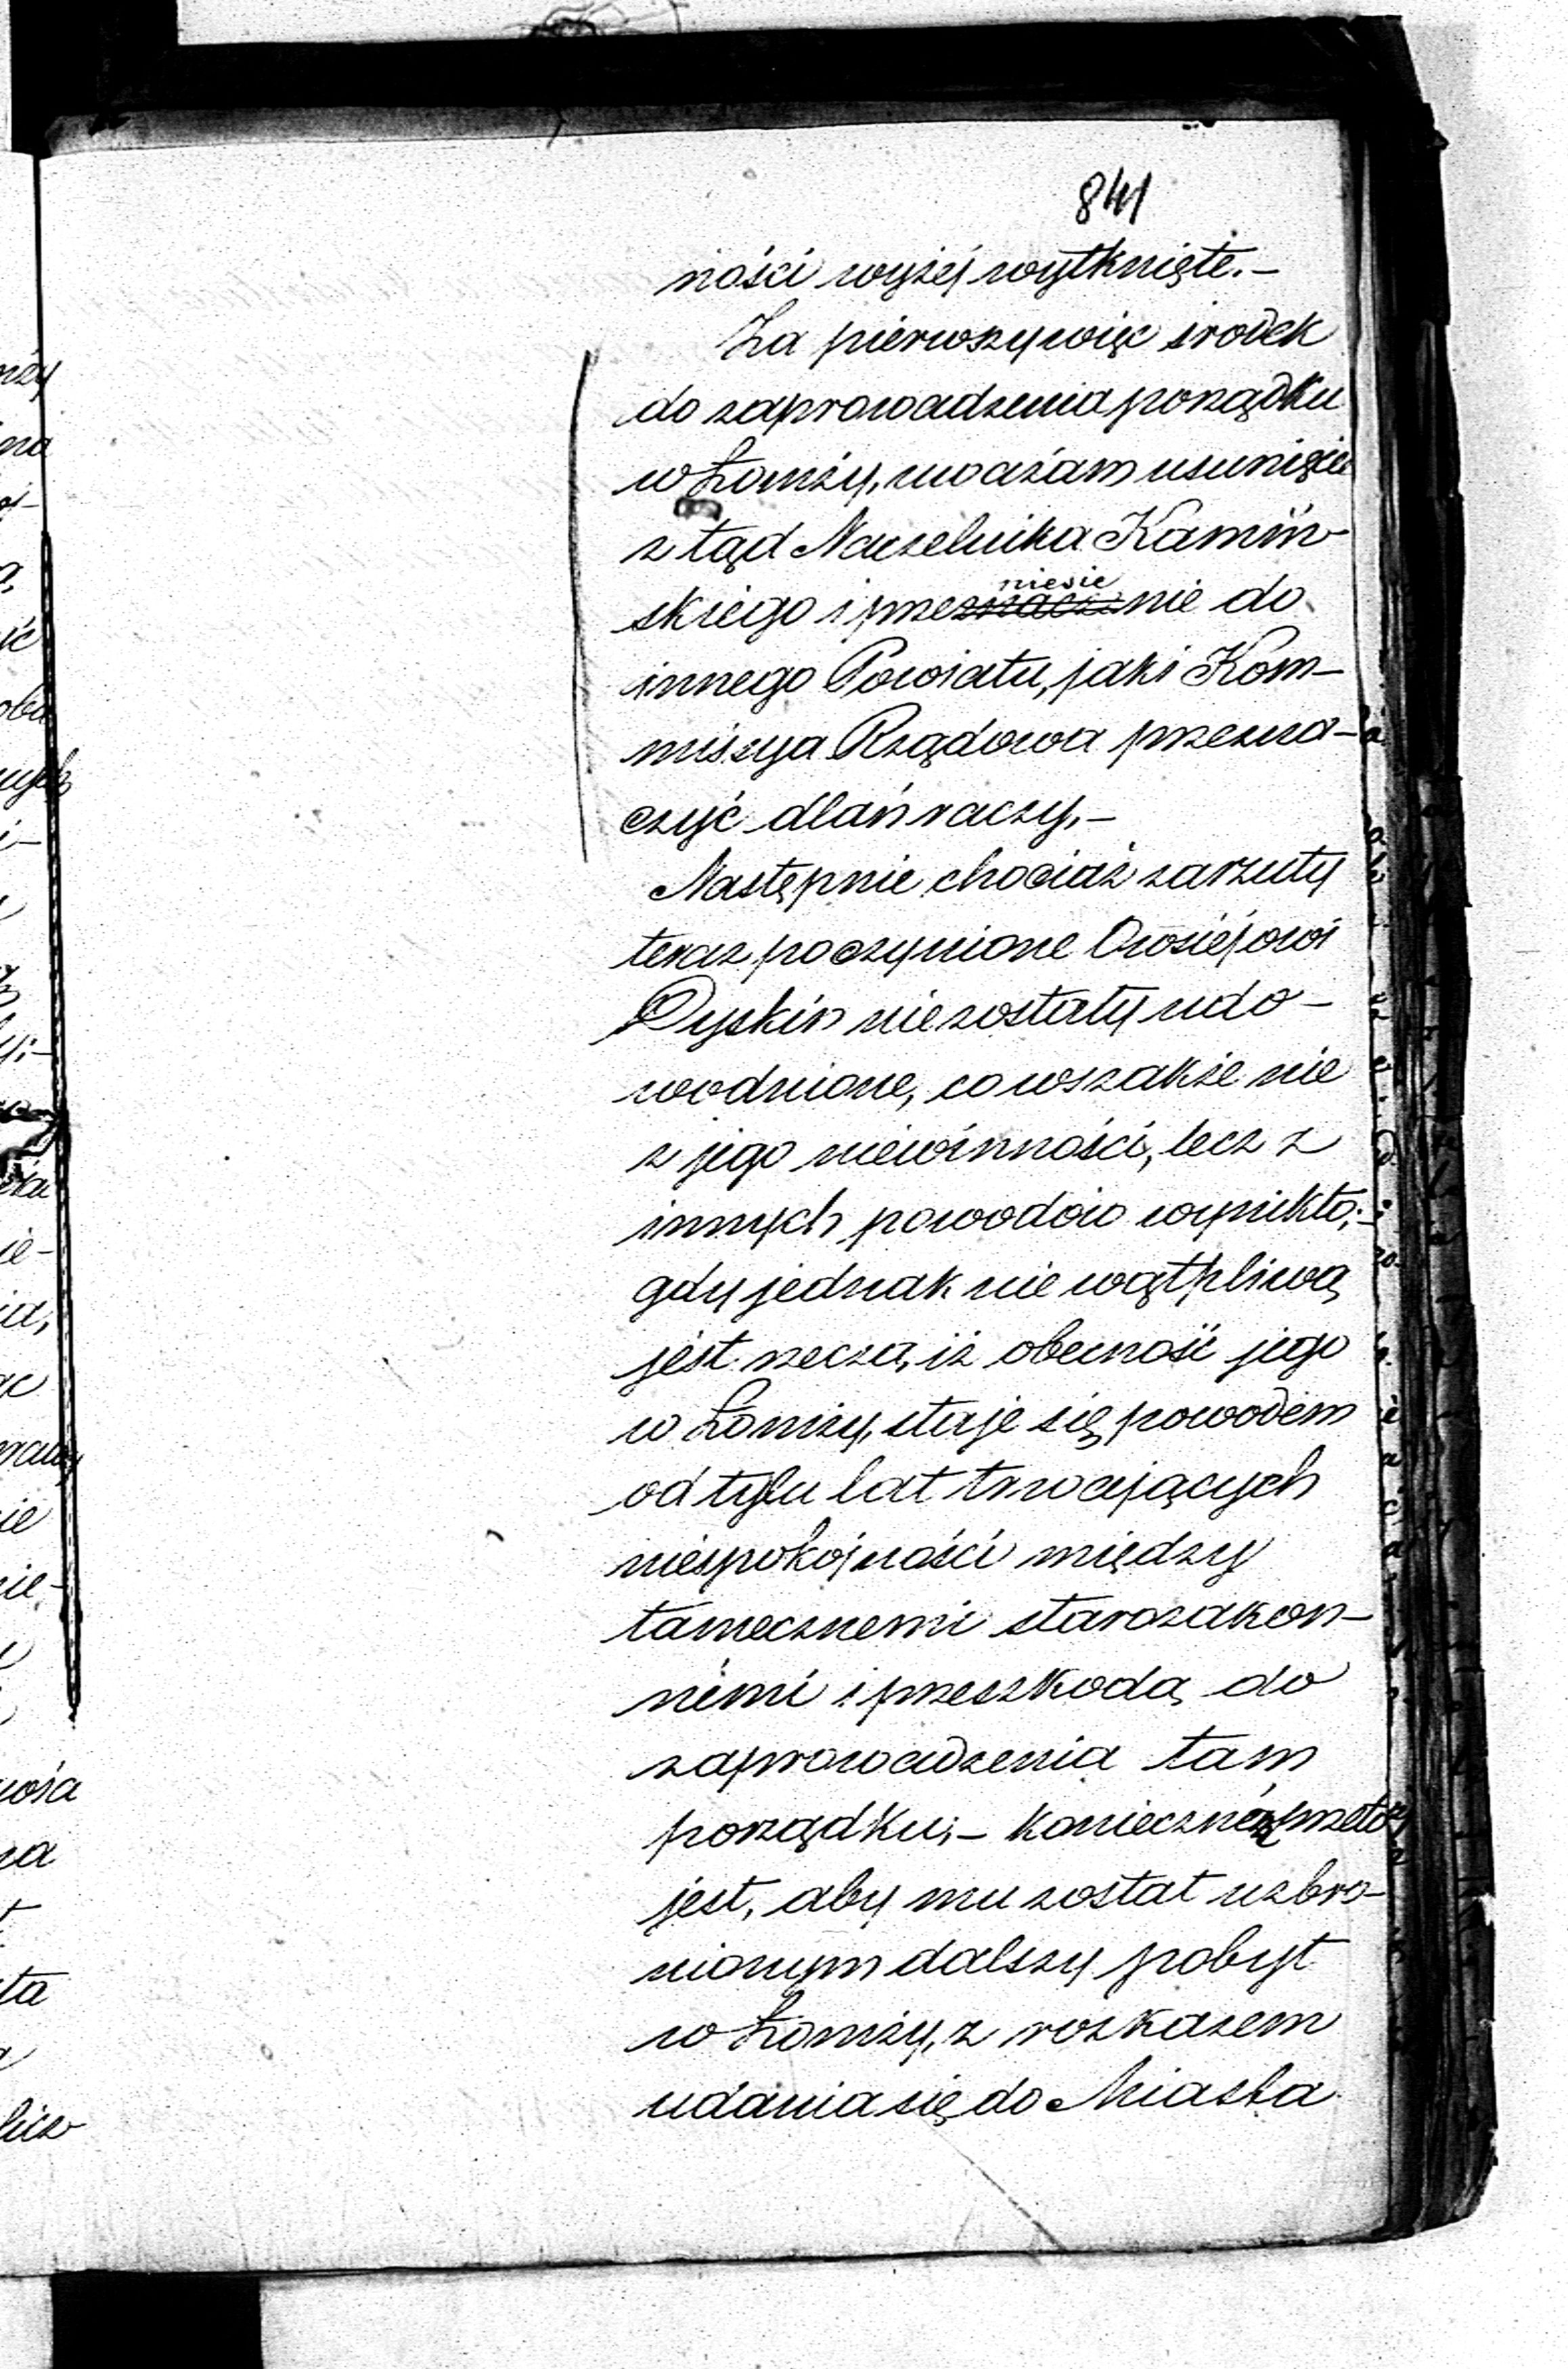 841
ności wyżéj wytknięte.—
Za pierwszy więc środek
do zaprowadzenia porządku
w Łomży, uważam usunięcie
z tąd Naczelnika Kamiń-
skiego i prze~~znacze~~niesienie do
innego Powiatu, jaki Kom-
missya Rządowa przezna-
czyć dlań raczy.—
Następnie chociaż zarzuty
teraz poczynione Owsiejowi
Dyskin nie zostały udo-
wodnione, co wszakże nie
z jego niewinności, lecz z
innych powodów wynikło;—
gdy jednak nie wątpliwą
jest rzeczą, iż obecność jego
w Łomży, staje się powodem
od tylu lat trwających
niespokojności między
tamecznemi starozakon-
nemi i przeszkodą do
zaprowadzenia tam
porządku;— koniecznem przeto
jest, aby mu został uzbro-
nionym dalszy pobyt
w Łomży, z rozkazem
udania się do Miasta